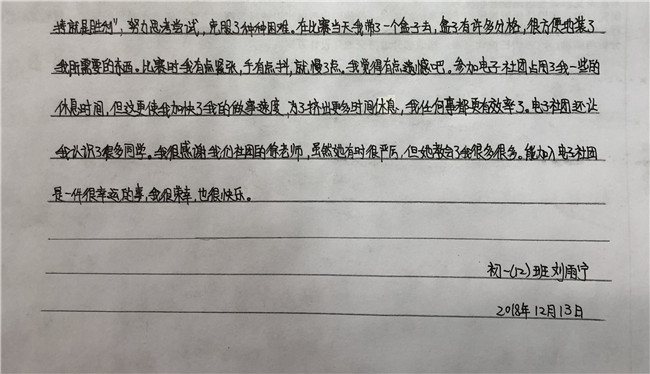 持就是胜利”,努力思考尝试,克服了种种困难。在比赛当天我带了一个盒子去,盒子有许多分格,很方便地装了
我所需要的东西。比赛时我有点紧张,手有点抖,就慢了点。我觉得有点遗憾吧。参加电子社团占用了我一些的
休息时间,但这更使我加快了我的做事速度,为了挤出更多时间休息,我任何事都更有效率了。电子社团还让
我认识了很多同学。我很感谢我们社团的徐老师,虽然她有时很严厉,但她教会了我很多很多。能加入电子社团
是一件很幸运的事,我很荣幸,也很快乐。
初一(12)班 刘雨宁
2018年12月13日